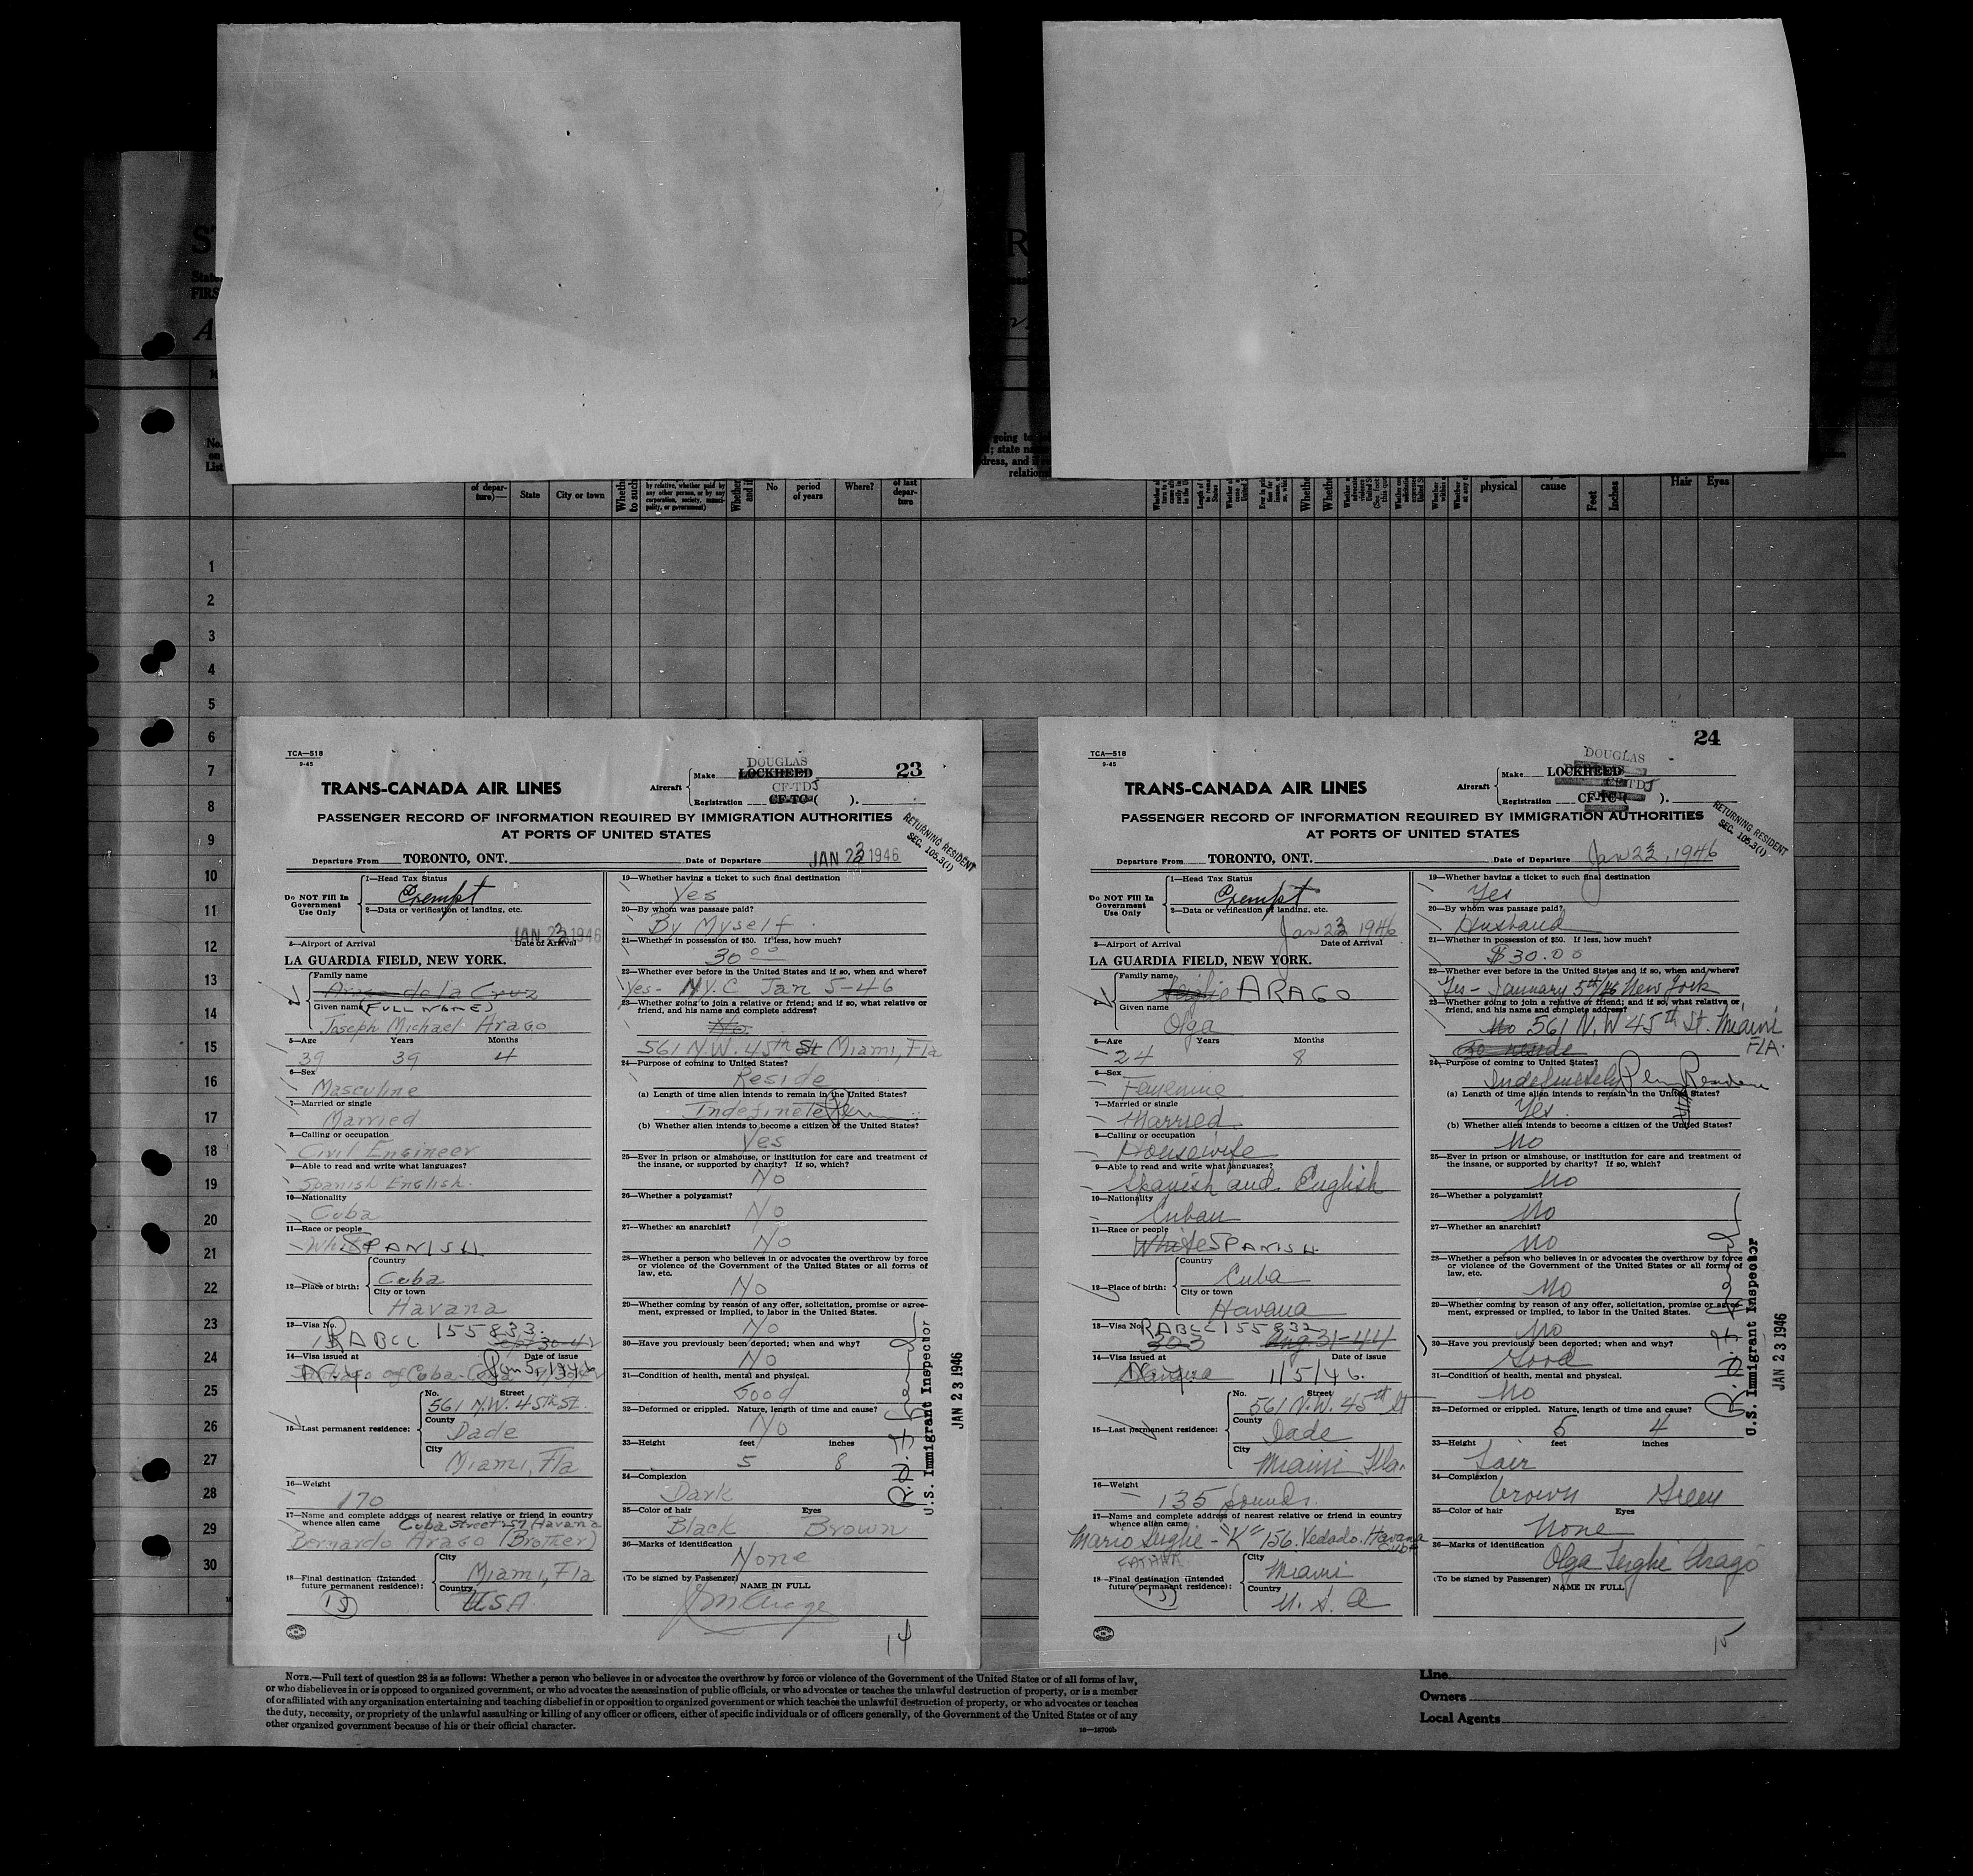 of depar-
ture)—
State
City or town
by relative, whether paid by
any other person, or by any
corporation, society, munici-
pality, or government)
No
period
of years
Where?
of last
depar-
ture
physical
cause
Feet
Inches
Hair
Eyes
No.
on
List
1
2
3
4
5
6
7
8
9
10
11
12
13
14
15
16
17
18
19
20
21
22
23
24
25
26
27
28
29
30
TCA—518
9-45
TRANS-CANADA AIR LINES
Aircraft
Make
DOUGLAS
LOCKHEED
CF-TDJ
Registration CF-TC-( ).
23
PASSENGER RECORD OF INFORMATION REQUIRED BY IMMIGRATION AUTHORITIES
AT PORTS OF UNITED STATES
RETURNING RESIDENT
SEC. 105.3(1)
Departure From TORONTO, ONT.
Date of Departure JAN 23 1946
Do NOT Fill In
Government
Use Only
1—Head Tax Status
Exempt
2—Data or verification of landing, etc.
JAN 23 1946
3—Airport of Arrival
Date of Arrival
LA GUARDIA FIELD, NEW YORK.
Family name
de la Cruz
Given name (FULL NAME)
Joseph Michael Arago
5—Age Years Months
39 39 4
6—Sex
Masculine
7—Married or single
Married
8—Calling or occupation
Civil Engineer
9—Able to read and write what languages?
Spanish English.
10—Nationality
Cuba
11—Race or people
White SPANISH
12—Place of birth:
Country
Cuba
City or town
Havana
13—Visa No.
RABCC 155833.
14—Visa issued at
Date of issue
Santiago of Cuba Jan 5, 1946
15—Last permanent residence:
No. Street
561 N.W. 45th St.
County
Dade
City
Miami, Fla
16—Weight
170
17—Name and complete address of nearest relative or friend in country
whence alien came Cuba Street 257 Havana
Bernardo Arago (Brother)
18—Final destination (Intended
future permanent residence):
City
Miami, Fla
Country
USA.
19—Whether having a ticket to such final destination
Yes
20—By whom was passage paid?
By Myself
21—Whether in possession of $50. If less, how much?
30 00
22—Whether ever before in the United States and if so, when and where?
Yes- N.Y.C Jan 5-46
23—Whether going to join a relative or friend; and if so, what relative or
friend, and his name and complete address?
No.
561 N.W. 45th St Miami, Fla
24—Purpose of coming to United States?
Reside
(a) Length of time alien intends to remain in the United States?
Indefinete Perm
(b) Whether alien intends to become a citizen of the United States?
Yes
25—Ever in prison or almshouse, or institution for care and treatment of
the insane, or supported by charity? If so, which?
No
26—Whether a polygamist?
No
27—Whether an anarchist?
No
28—Whether a person who believes in or advocates the overthrow by force
or violence of the Government of the United States or all forms of
law, etc.
No
29—Whether coming by reason of any offer, solicitation, promise or agree-
ment, expressed or implied, to labor in the United States.
No
30—Have you previously been deported; when and why?
No
31—Condition of health, mental and physical.
Good
32—Deformed or crippled. Nature, length of time and cause?
No
33—Height feet inches
5 8
34—Complexion
Dark
35—Color of hair Eyes
Black Brown
36—Marks of identification
None
(To be signed by Passenger)
NAME IN FULL
J M Arago
U.S. Immigrant Inspector
JAN 23 1946
14
TCA—518
9-45
TRANS-CANADA AIR LINES
Aircraft
Make
DOUGLAS
LOCKHEED
CF-TDJ
Registration CF-TC-( ).
24
PASSENGER RECORD OF INFORMATION REQUIRED BY IMMIGRATION AUTHORITIES
AT PORTS OF UNITED STATES
RETURNING RESIDENT
SEC. 105.3(1)
Departure From TORONTO, ONT.
Date of Departure Jan 23, 1946
Do NOT Fill In
Government
Use Only
1—Head Tax Status
Exempt
2—Data or verification of landing, etc.
Jan 23 1946
3—Airport of Arrival
Date of Arrival
LA GUARDIA FIELD, NEW YORK.
Family name
ARAGO
Given name
Olga
5—Age Years Months
24 8
6—Sex
Femenine
7—Married or single
Married.
8—Calling or occupation
Housewife
9—Able to read and write what languages?
Spanish and English
10—Nationality
Cuban
11—Race or people
White SPANISH.
12—Place of birth:
Country
Cuba
City or town
Havana
13—Visa No.
RABCC 155832
303 Aug. 31-44
14—Visa issued at
Date of issue
1/5/46.
15—Last permanent residence:
No. Street
561 N.W. 45th St
County
Dade
City
Miami Fla.
16—Weight
135 pounds.
17—Name and complete address of nearest relative or friend in country
whence alien came
Mario Seiglie - "K" 156. Vedado. Havana
Cuba
FATHER
18—Final destination (Intended
future permanent residence):
City
Miami
Country
U. S. A
19—Whether having a ticket to such final destination
Yes
20—By whom was passage paid?
Husband
21—Whether in possession of $50. If less, how much?
$30.00
22—Whether ever before in the United States and if so, when and where?
Yes- January 5th/46 New York
23—Whether going to join a relative or friend; and if so, what relative or
friend, and his name and complete address?
No 561 N.W 45th St. Miami
FLA.
To reside
24—Purpose of coming to United States?
Indefinetely Perm Residence
(a) Length of time alien intends to remain in the United States?
Yes.
(b) Whether alien intends to become a citizen of the United States?
No
25—Ever in prison or almshouse, or institution for care and treatment of
the insane, or supported by charity? If so, which?
No
26—Whether a polygamist?
No
27—Whether an anarchist?
No
28—Whether a person who believes in or advocates the overthrow by force
or violence of the Government of the United States or all forms of
law, etc.
No
29—Whether coming by reason of any offer, solicitation, promise or agree-
ment, expressed or implied, to labor in the United States.
No
30—Have you previously been deported; when and why?
Good
31—Condition of health, mental and physical.
No
32—Deformed or crippled. Nature, length of time and cause?
5 4
33—Height feet inches
Fair
34—Complexion
brown Green
35—Color of hair Eyes
None
36—Marks of identification
Olga Seiglie Arago
(To be signed by Passenger)
NAME IN FULL
U.S. Immigrant Inspector
JAN 23 1946
15
NOTE.—Full text of question 28 is as follows: Whether a person who believes in or advocates the overthrow by force or violence of the Government of the United States or of all forms of law,
or who disbelieves in or is opposed to organized government, or who advocates the assassination of public officials, or who advocates or teaches the unlawful destruction of property, or is a member
of or affiliated with any organization entertaining and teaching disbelief in or opposition to organized government or which teaches the unlawful destruction of property, or who advocates or teaches
the duty, necessity, or propriety of the unlawful assaulting or killing of any officer or officers, either of specific individuals or of officers generally, of the Government of the United States or of any
other organized government because of his or their official character.
Line
Owners
Local Agents